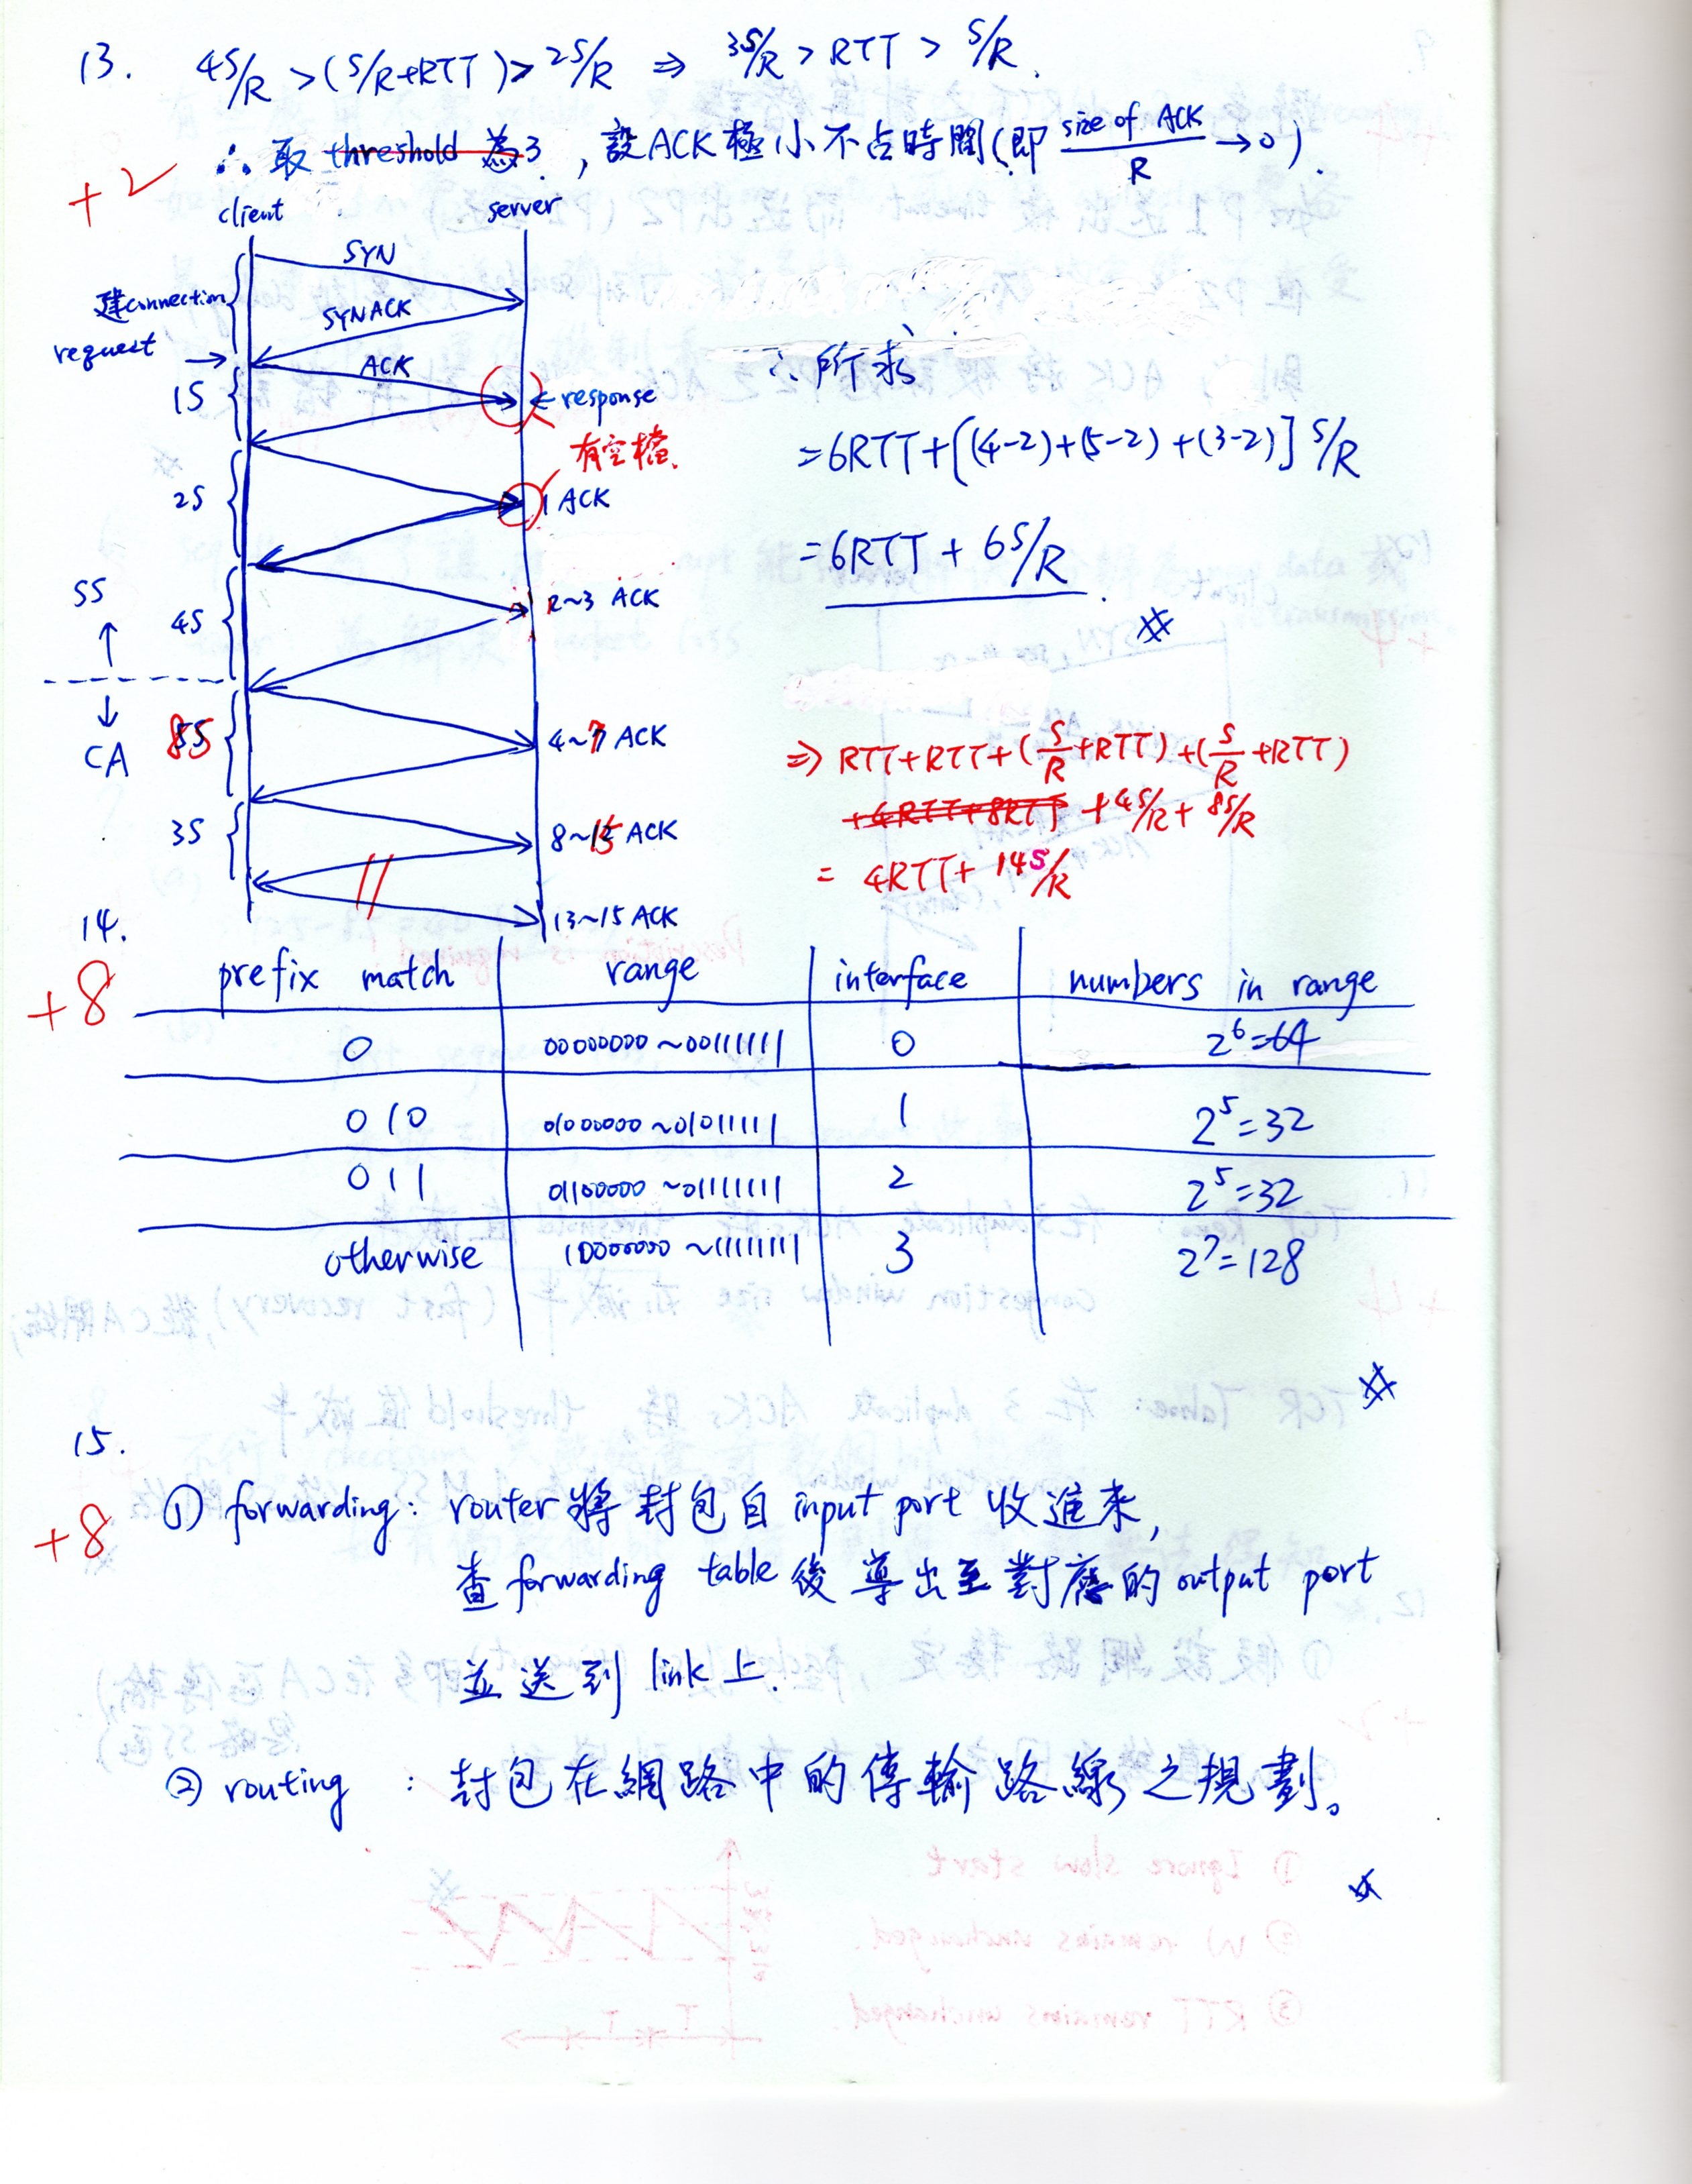 13. 4S/R > (S/R+RTT) > 2S/R ⇒ 3S/R > RTT > S/R.
∴ 取 threshold 為3, 設ACK極小不占時間(即 size of ACK / R → 0).
+2
client server
SYN
建connection
SYNACK
request →
ACK
1S
← response
有空檔.
2S
1 ACK
SS
↑
4S
2~3 ACK
↓
CA
8S
4~7 ACK
3S
8~15 ACK
13~15 ACK
∴所求
=6RTT+[(4-2)+(5-2)+(3-2)] S/R
=6RTT + 6S/R.
⇒ RTT+RTT+(S/R+RTT)+(S/R+RTT)
+4RTT+8RTT +4S/R+8S/R
= 4RTT+ 14S/R
14.
+8
prefix match range interface numbers in range
0 00000000 ~00111111 0 2^6=64
010 01000000 ~01011111 1 2^5=32
011 01100000 ~01111111 2 2^5=32
otherwise 10000000 ~11111111 3 2^7=128
15.
+8
① forwarding: router將封包自 input port 收進來,
查 forwarding table 後導出至對應的 output port
並送到 link 上.
② routing : 封包在網路中的傳輸路線之規劃。